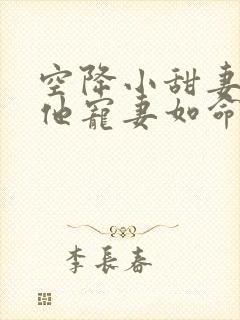 空降小甜妻
他寵妻如命
李長春